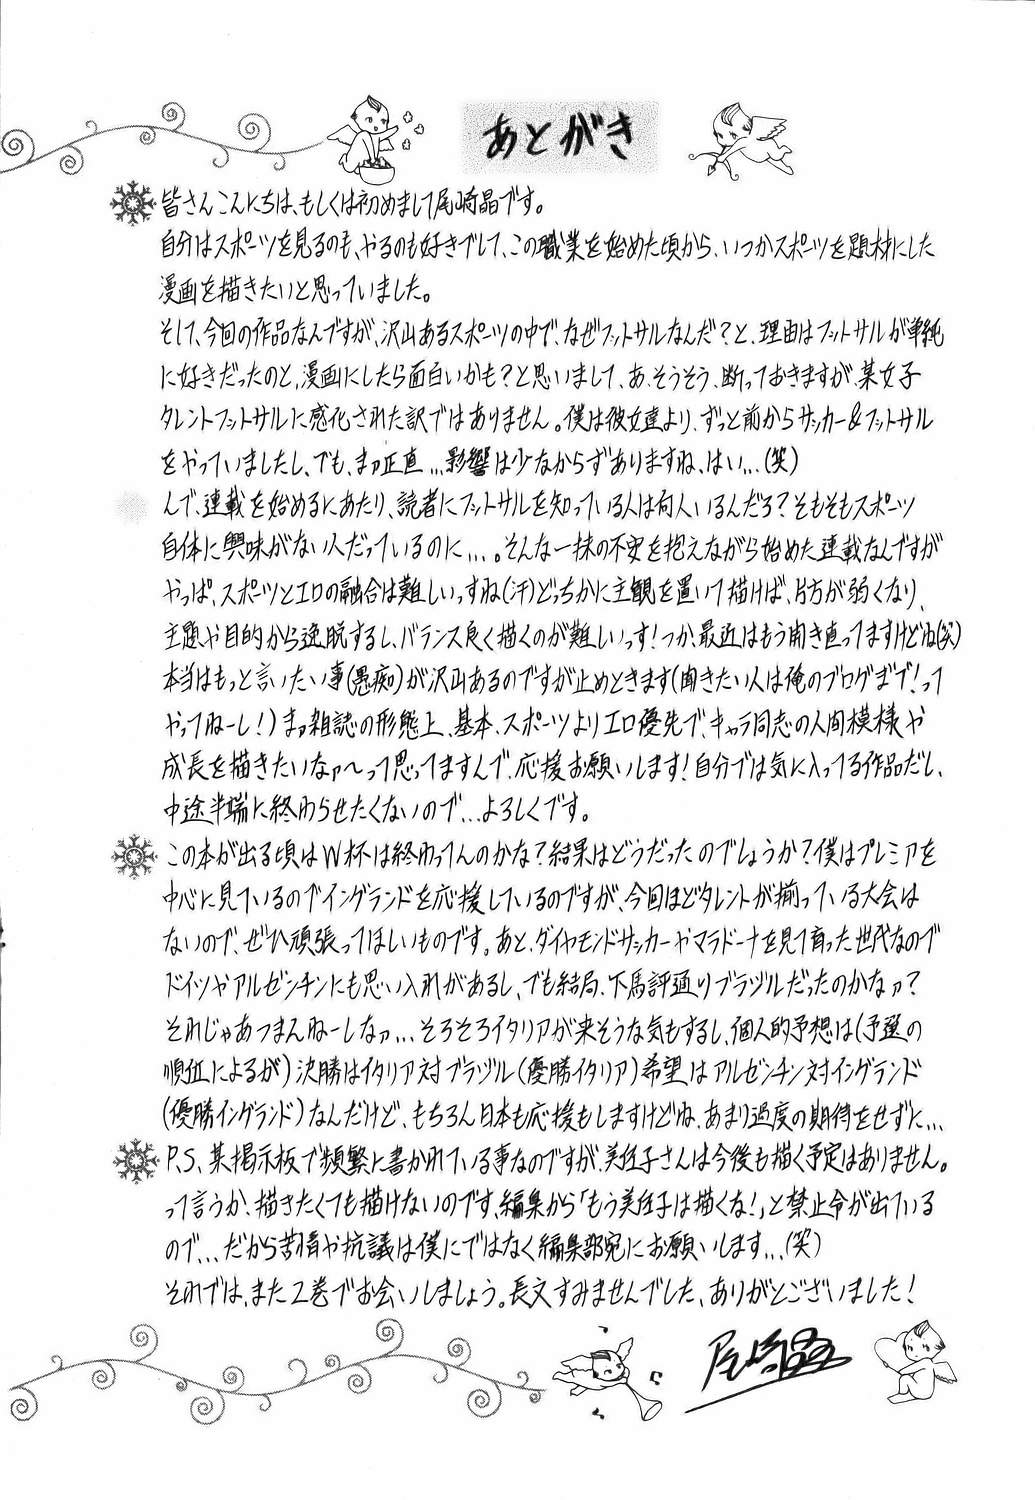 あとがき
皆さんこんにちは、もしくは初めまして尾崎晶です。
自分はスポーツを見るのも、やるのも好きでして、この職業を始めた頃から、いつかスポーツを題材にした
漫画を描きたいと思っていました。
そして、今回の作品なんですが、沢山あるスポーツの中で、なぜフットサルなんだ?と、理由はフットサルが単純
に好きだったのと、漫画にしたら面白いかも?と思いまして、あ、そうそう、断っておきますが、某女子
タレントフットサルに感化された訳ではありません。僕は彼女達より、ずっと前からサッカー&フットサル
をやっていましたし、でも、まァ正直...影響は少なからずありますね、はい...(笑)
んで、連載を始めるにあたり、読者にフットサルを知っている人は何人いるんだろ?そもそもスポーツ
自体に興味がない人だっているのに...。そんな一抹の不安を抱えながら始めた連載なんですが
やっぱ、スポーツとエロの融合は難しいっすね(汗)どっちかに主観を置いて描けば、片方が弱くなり、
主題や目的から逸脱するし、バランス良く描くのが難しいっす!つか、最近はもう開き直ってますけどね(笑)
本当はもっと言いたい事(愚痴)が沢山あるのですが止めときます(聞きたい人は俺のブログまで!って
やってねーし!)まァ雑誌の形態上、基本、スポーツよりエロ優先で、キャラ同志の人間模様や
成長を描きたいなァ〜って思ってますんで、応援お願いします!自分では気に入ってる作品だし、
中途半端に終わらせたくないので...よろしくです。
この本が出る頃はW杯は終わってんのかな?結果はどうだったのでしょうか?僕はプレミアを
中心に見ているのでイングランドを応援しているのですが、今回ほどタレントが揃っている大会は
ないので、ぜひ頑張ってほしいものです。あと、ダイヤモンドサッカーやマラドーナを見て育った世代なので
ドイツやアルゼンチンにも思い入れがあるし、でも結局、下馬評通りブラヅルだったのかなァ?
それじゃあつまんねーしなァ...そろそろイタリアが来そうな気もするし、個人的予想は(予選の
順位によるが)決勝はイタリア対ブラヅル(優勝イタリア)希望はアルゼンチン対イングランド
(優勝イングランド)なんだけど、もちろん日本も応援もしますけどね、あまり過度の期待をせずに...
P.S、某掲示板で頻繁に書かれている事なのですが、美任子さんは今後も描く予定はありません。
って言うか、描きたくても描けないのです、編集から「もう美任子は描くな!」と禁止令が出ている
ので...だから苦情や抗議は僕にではなく編集部宛にお願いします...(笑)
それでは、また2巻でお会いしましょう。長文すみませんでした、ありがとございました!